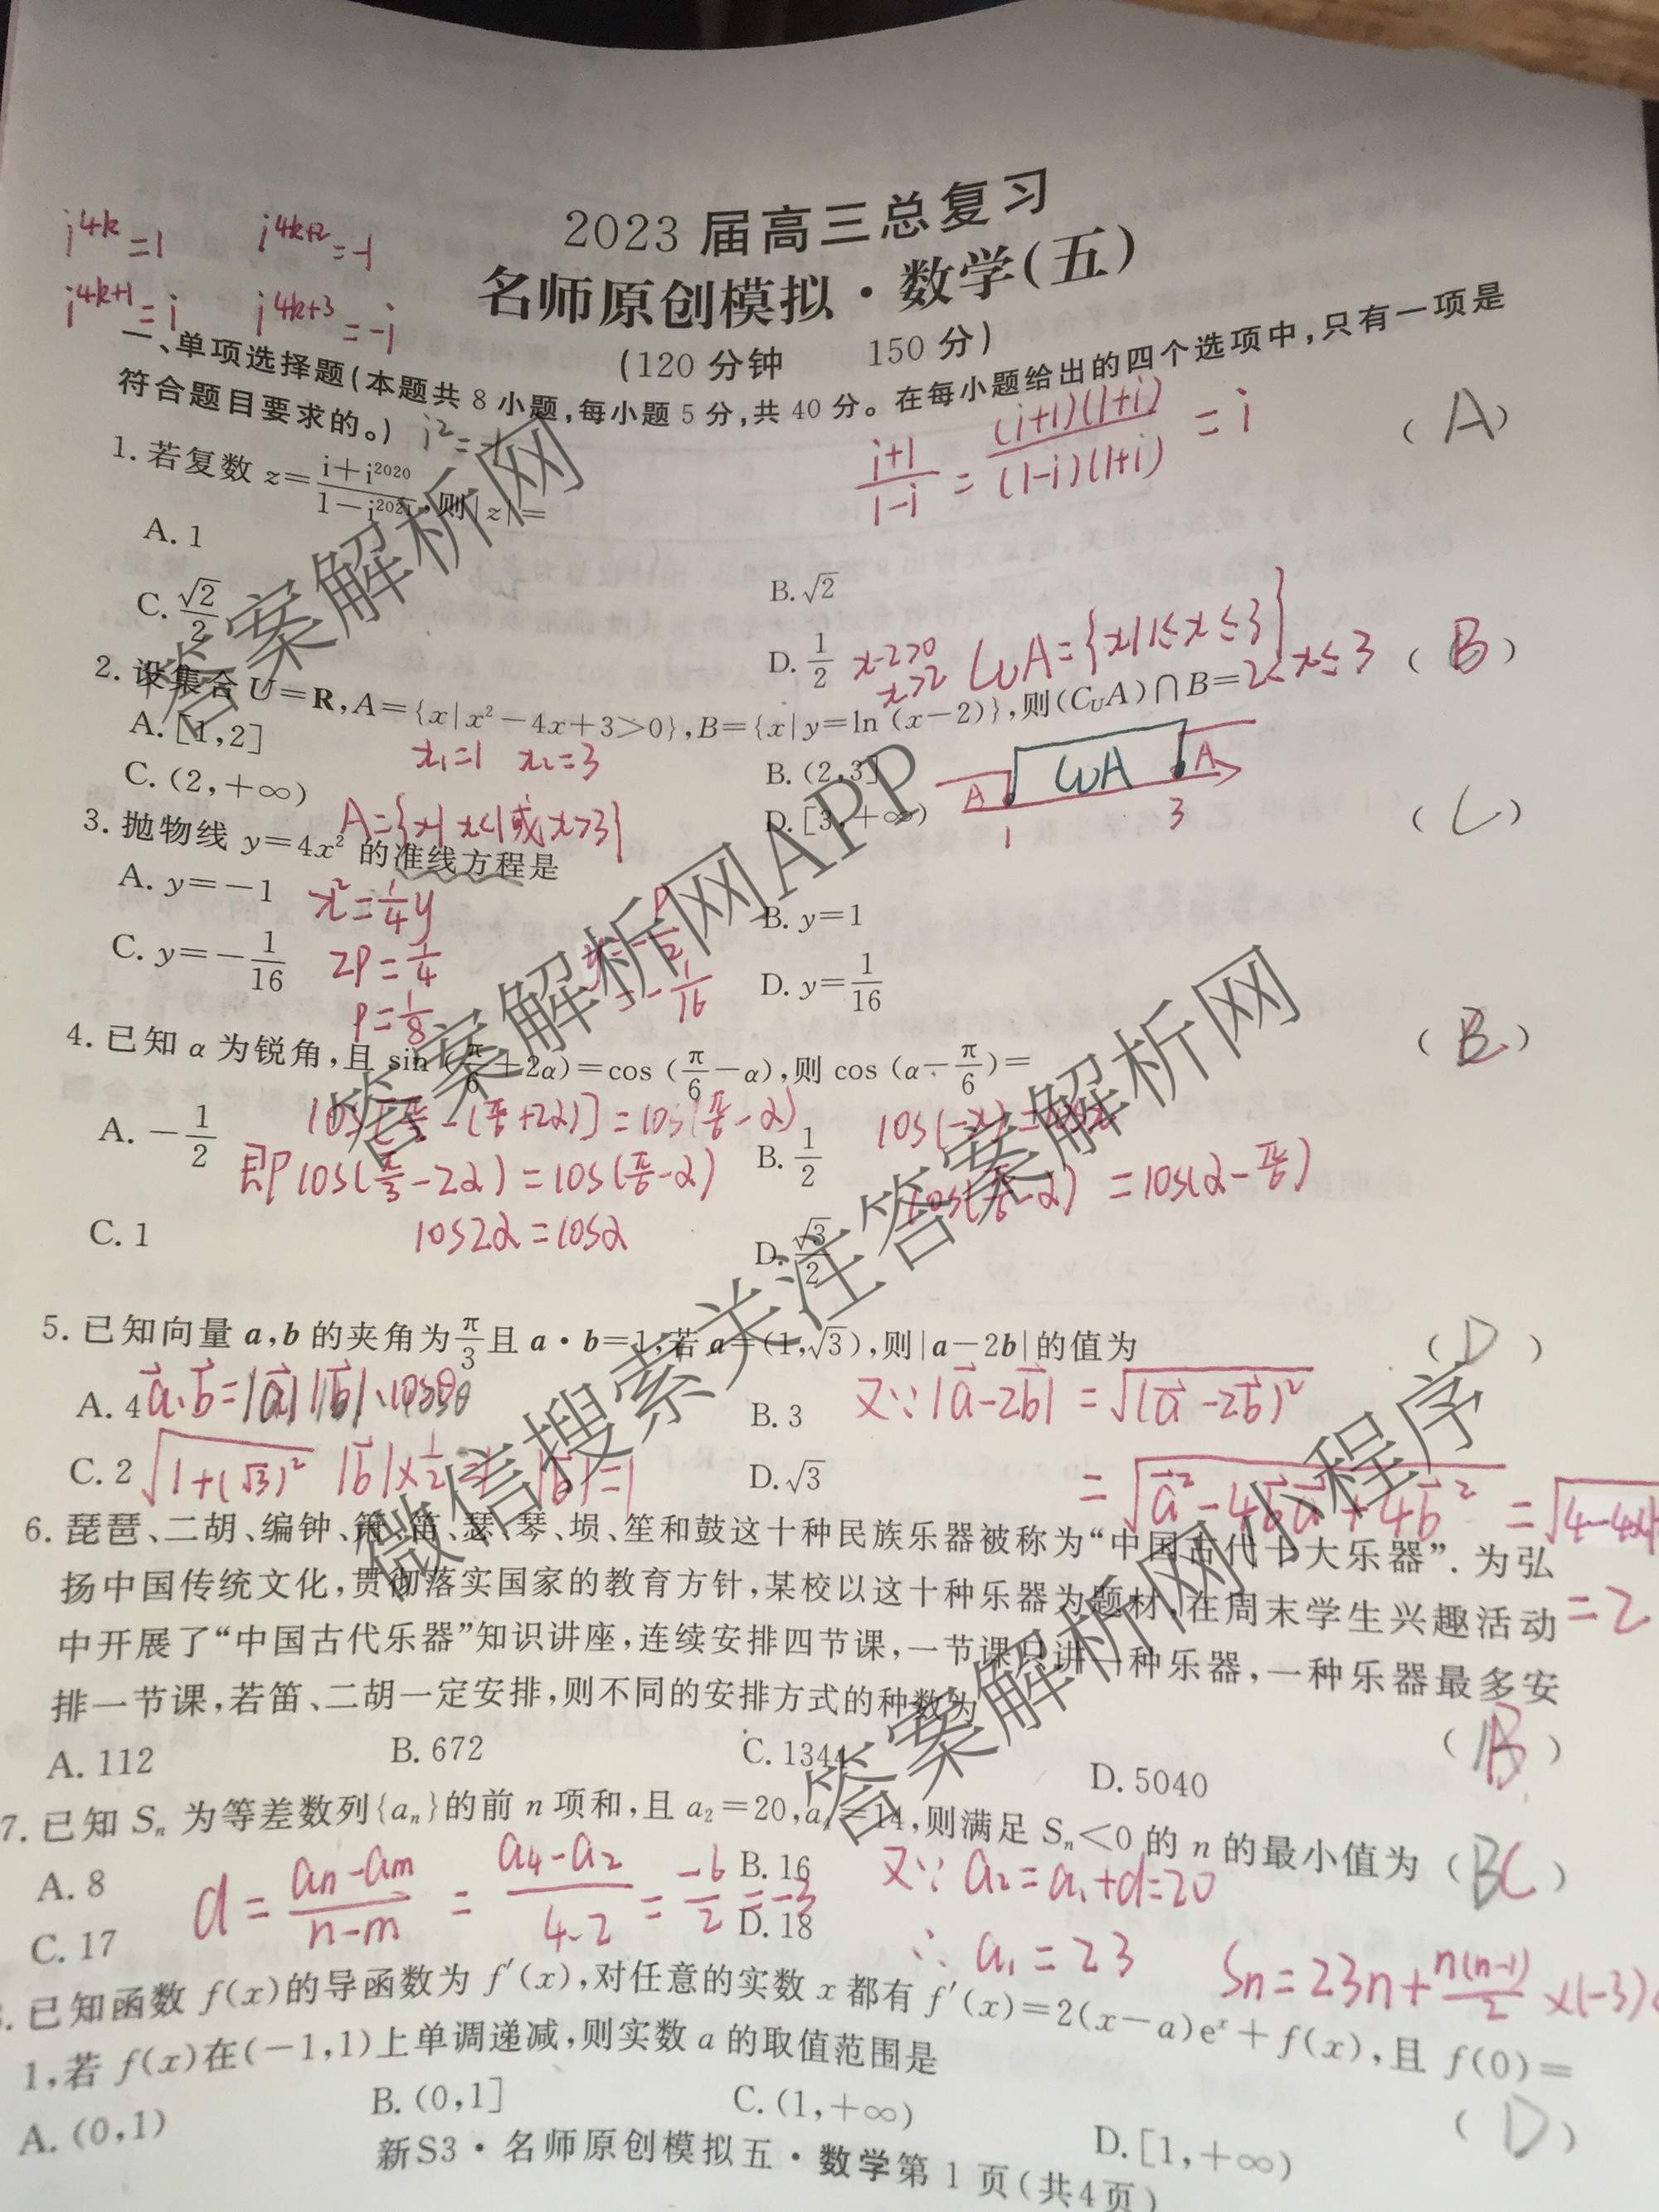 i^{4k}=1 i^{4k+2}=-1
i^{4k+1}=i i^{4k+3}=-i
2023 届高三总复习
名师原创模拟·数学(五)
(120 分钟 150 分)
一、单项选择题(本题共 8 小题,每小题 5 分,共 40 分。在每小题给出的四个选项中,只有一项是
符合题目要求的。) i²=-1
1. 若复数 z=\frac{i+i^{2020}}{1-i^{2021}},则|z|= (A)
\frac{i+1}{1-i}=\frac{(i+1)(1+i)}{(1-i)(1+i)}=i
A. 1
B. √2
C. \frac{√2}{2}
D. \frac{1}{2} x-2>0 CuA={x|1≤x≤3}
x>2 2<x≤3
2. 设集合 U=R,A={x|x²-4x+3>0},B={x|y=ln (x-2)},则(C_UA)∩B= (B)
A. [1,2] x₁=1 x₂=3
B. (2,3]
A CuA A
1 3
C. (2,+∞) A={x|x<1或x>3}
D. [3,+∞)
3. 抛物线 y=4x² 的准线方程是 (C)
A. y=-1 x²=\frac{1}{4}y
B. y=1
C. y=-\frac{1}{16} 2P=\frac{1}{4} y=-\frac{P}{2}
=-\frac{1}{16}
D. y=\frac{1}{16}
P=\frac{1}{8}
4. 已知 α 为锐角,且 sin (\frac{π}{6}+2α)=cos (\frac{π}{6}-α),则 cos (α-\frac{π}{6})=
cos[-(\frac{π}{6}+2α)]=cos(\frac{π}{6}-α) cos(-x)=cosx
A. -\frac{1}{2}
即cos(\frac{π}{3}-2α)=cos(\frac{π}{6}-α)
B. \frac{1}{2} cos(\frac{π}{6}-α)=cos(α-\frac{π}{6})
C. 1 cos2α=cosα
D. \frac{√3}{2}
5. 已知向量 a,b 的夹角为\frac{π}{3}且 a·b=1,若 a=(1,√3),则|a-2b|的值为 (D)
A. 4 a·b=|a||b|·cosθ
B. 3 又∵|a-2b|=√(a-2b)²
C. 2 √1+(√3)² |b|×\frac{1}{2}=1 |b|=1
D. √3 =√a²-4ba+4b² =√4-4×1
=2
6. 琵琶、二胡、编钟、箫、笛、瑟、琴、埙、笙和鼓这十种民族乐器被称为“中国古代十大乐器”. 为弘
扬中国传统文化,贯彻落实国家的教育方针,某校以这十种乐器为题材,在周末学生兴趣活动
中开展了“中国古代乐器”知识讲座,连续安排四节课,一节课只讲一种乐器,一种乐器最多安
排一节课,若笛、二胡一定安排,则不同的安排方式的种数为 (B)
A. 112 B. 672 C. 1344 D. 5040
7. 已知 Sₙ 为等差数列{aₙ}的前 n 项和,且 a₂=20,a₄=14,则满足 Sₙ<0 的 n 的最小值为 (BC)
A. 8
B. 16
C. 17
D. 18
d=\frac{an-am}{n-m}=\frac{a4-a2}{4-2}=\frac{-6}{2}=-3 又∵ a₂=a₁+d=20
∴ a₁=23 Sn=23n+\frac{n(n-1)}{2}×(-3)
. 已知函数 f(x)的导函数为 f′(x),对任意的实数 x 都有 f′(x)=2(x-a)eˣ+f(x),且 f(0)=
1,若 f(x)在(-1,1)上单调递减,则实数 a 的取值范围是 (D)
A. (0,1) B. (0,1] C. (1,+∞) D. [1,+∞)
新S3·名师原创模拟五·数学第 1 页(共4页)
答案解析网
答案解析网APP
微信搜索关注答案解析网
答案解析网小程序